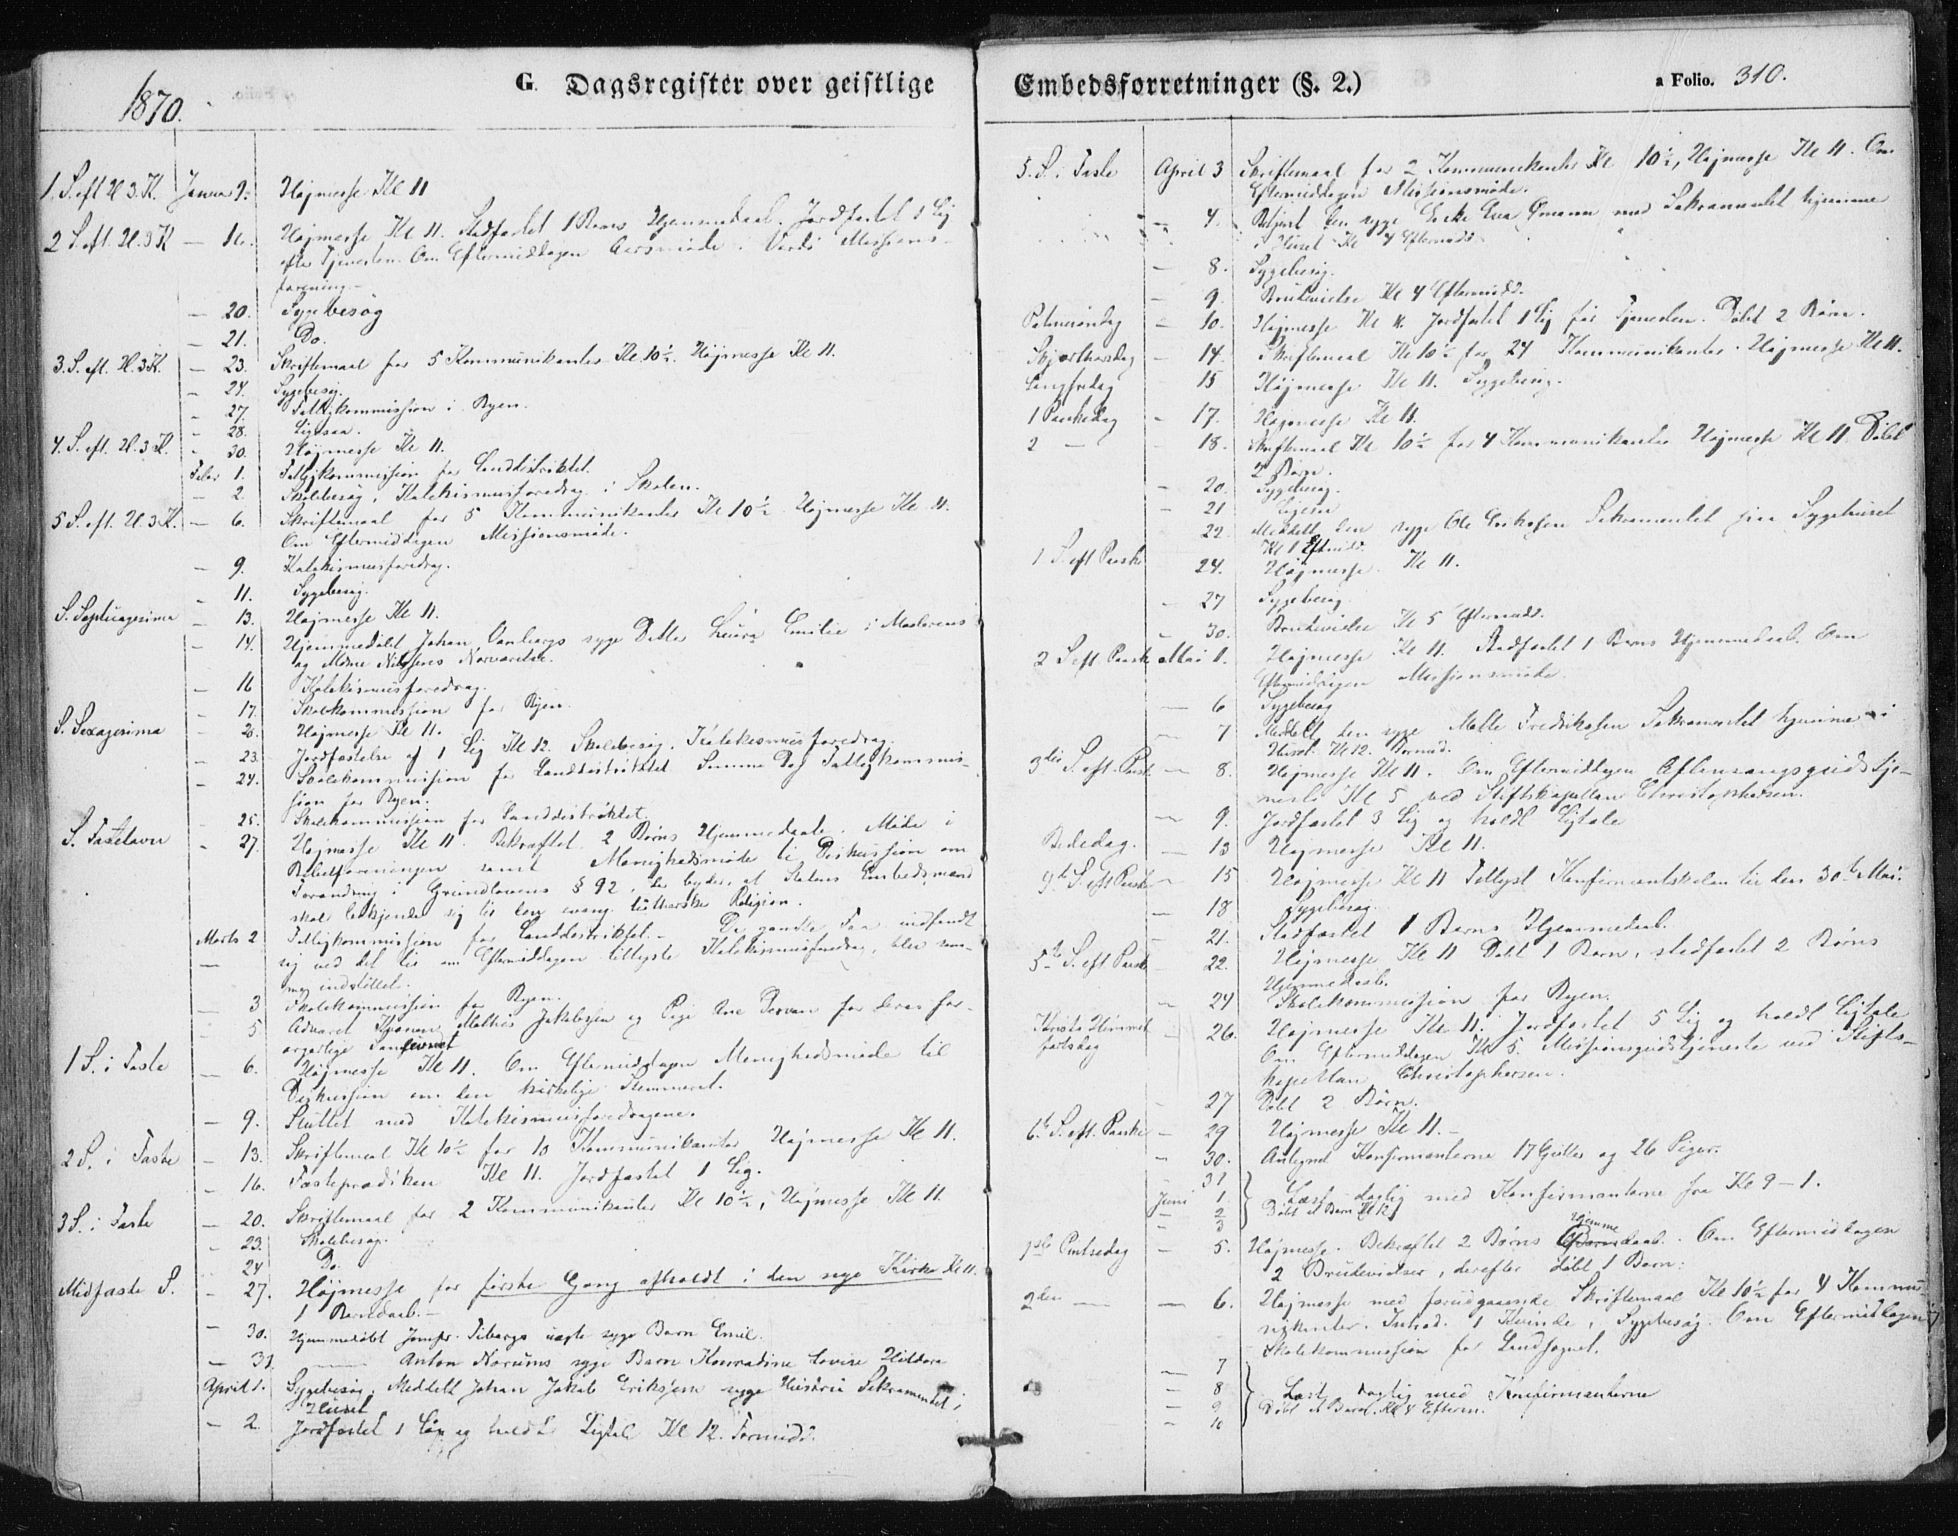 1870.
G. Dagsregister over geistlige
1. S. eft. H. 3. K. Januar 9. Højmesse Kl 11
2 S. eft. H. 3 K — 16. Højmesse Kl 11. Stadfæstet 1 Barns Hjemmedaab. Jordfæstet 1 Lig
efter Tjenesten. Om Eftermiddagen Aarsmøde. Missions-
forening.
— 20. Sygebesøg
— 21. Do.
3. S. eft. H. 3 K. — 23. Skriftemaal for 5 Kommunikanter Kl. 10½. Højmesse Kl 11.
— 24. Sygebesøg.
— 27. Fattigkommission i Byen.
— 28.
4. S. eft. H. 3 K. — 30. Højmesse Kl 11.
Febr 1. Fattigkommission for Landdistriktet.
— 2 Skolebesøg, Katekismusforedrag i Skolen.
5 S. eft. H. 3 K. — 6. Skriftemaal for 5 Kommunikanter Kl 10½ Højmesse Kl 11.
Om Eftermiddagen Missionsmøde.
— 9. Katekismusforedrag.
— 11. Sygebesøg.
S. Septuagesima — 13. Højmesse Kl 11.
— 14. Hjemmedøbt Johan syge Datter Laura Emilie i Moderens
og Nærværelse.
— 16 Katekismusforedrag.
— 17. Skolekommission for Byen.
S. Sexagesima — 20. Højmesse Kl 11.
— 23. Jordfæstelse af 1 Lig Kl 12. Skolebesøg. Katekismusforedrag.
— 24. Skolekommission for Landdistriktet Samme Dag Fattigkommis-
sion for Byen.
— 25. Skolekommission for Landdistriktet.
S. Fastelavn — 27. Højmesse Kl 11. Bekræftet 2 Børns Hjemmedaab. Møde i
samt Menighedsmøde til Diskussion om
Forandring i Grundlovens § 92, der byder, at Statens Embedsmænd
skal bekjende sig til den evang. lutherske Religion.
Marts 2 Fattigkommission for Landdistriktet. — De ganske Faa indfandt
sig ved det til om Eftermiddagen tillyste Katekismusforedrag, blev
indstillet.
— 3 Skolekommission for Byen.
5 Advaret Mathis Jakobsen og Pige Ane for deres for-
argelige Samlevnet
1 S. i Faste — 6. Højmesse Kl 11. Om Eftermiddagen Menighedsmøde til
Diskussion om den kirkelige Stemmeret.
— 9. Sluttet med Katekismusforedragene.
2 S. i Faste — 13. Skriftemaal Kl 10½ for 10 Kommunikanter Højmesse Kl 11.
— 16. Fasteprædiken Kl 11. Jordfæstet 1 Lig.
3 S. i Faste — 20. Skriftemaal for 2 Kommunikanter Kl 10½, Højmesse Kl 11.
— 23. Skolebesøg.
24 Do.
Midfaste S. — 27. Højmesse for første Gang afholdt i den nye Kirke Kl 11.
1 Barnedaab. —
— 30. Hjemmedøbt Jomfr. uægte syge Barn Emil.
— 31 —— Anton Norums syge Barn Konradine Lovise
April 1. Sygebesøg. Meddelt Johan Jakob Eriksens syge Hustru Sakramentet i
Huset
— 2. Jordfæstet 1 Lig og holdt Ligtale Kl 12 Formidd.
Embedsforretninger (§. 2.)
a Folio. 310.
5. S. i Faste April 3 Skriftemaal for 2 Kommunikanter Kl 10½, Højmesse Kl 11. Om
Eftermiddagen Missionsmøde.
— 4. Betjent den syge Enke Eva med Sakramentet hjemme
i Huset Kl 4 Eftermidd.
— 8. Sygebesøg.
— 9. Brudevielse Kl 4 Eftermidd.
Palmesøndag — 10. Højmesse Kl 11. Jordfæstet 1 Lig før Tjenesten. Døbt 2 Børn.
Skjærthorsdag — 14. Skriftemaal Kl 10½ for 24 Kommunikanter. Højmesse Kl 11.
Langfredag — 15 Højmesse Kl 11. Sygebesøg.
1 Paaskedag — 17. Højmesse Kl 11.
2 — — 18. Skriftemaal Kl 10½ for 4 Kommunikanter Højmesse Kl 11 Døbt
2 Børn.
— 20. Sygebesøg.
— 21
22. Meddelt den syge Ole Eriksen Sakramentet paa Sygehuset
Kl 1 Eftmidd.
1 S. eft Paaske 24. Højmesse Kl 11.
— 27 Sygebesøg
— 30. Brudevielse Kl 5 Eftermidd.
2 S. eft. Paaske Mai 1. Højmesse Kl 11. Stadfæstet 1 Barns Hjemmedaab. Om
Eftermiddagen Missionsmøde.
— 6 Sygebesøg
— 7 Meddelt den syge Malle Fredriksen Sakramentet hjemme i
Huset Kl 12. Formid.
3die S. eft. Pask. — 8. Højmesse Kl 11. Om Eftermiddagen Aftensangsgudstje-
neste Kl 5 ved Stiftskapellan Christophersen.
— 9. Jordfæstet 3 Lig og holdt Ligtale
Bededag. — 13 Højmesse Kl 11.
S. eft Paaske — 15 Højmesse Kl 11 Tillyst Konfirmantskolen til den 30te Mai.
— 18 Sygebesøg.
— 21. Stadfæstet 1 Barns Hjemmedaab.
5te S. eft. Paask — 22. Højmesse Kl 11 Døbt 1 Barn, stadfæstet 2 Børns
Hjemmedaab.
— 24 Skolekommission for Byen.
Kristi Himmel — 26. Højmesse Kl 11. Jordfæstet 5 Lig og holdt Ligtale
fartsdag Om Eftermiddagen Kl 5. Missionsgudstjeneste ved Stifts-
kapellan Christophersen.
— 27 Døbt 2 Børn.
6te S. eft. Paaske — 29 Højmesse Kl 11. —
— 30. Antegnet Konfirmanterne 17 Gutter og 26 Piger.
31
Juni 1. Læst daglig med Konfirmanterne fra Kl 9–1.
— 2 Døbt et Barn Kl 12
— 3
1ste Pintsedag — 5. Højmesse. Bekræftet 2 Børns Hjemmedaab. Om Eftermiddagen
2 Brudevielser, derefter døbt 1 Barn.
2den —— — 6. Højmesse med forudgaaende Skriftemaal Kl 10½ for 4 Kommu-
nikanter. Introd. 1 Kvinde, Sygebesøg. Om Eftermiddagen
Skolekommission for Landsognet.
— 7
— 8 Læst daglig med Konfirmanterne
— 9 Døbt et Barn Kl 4 Efterm.
— 10